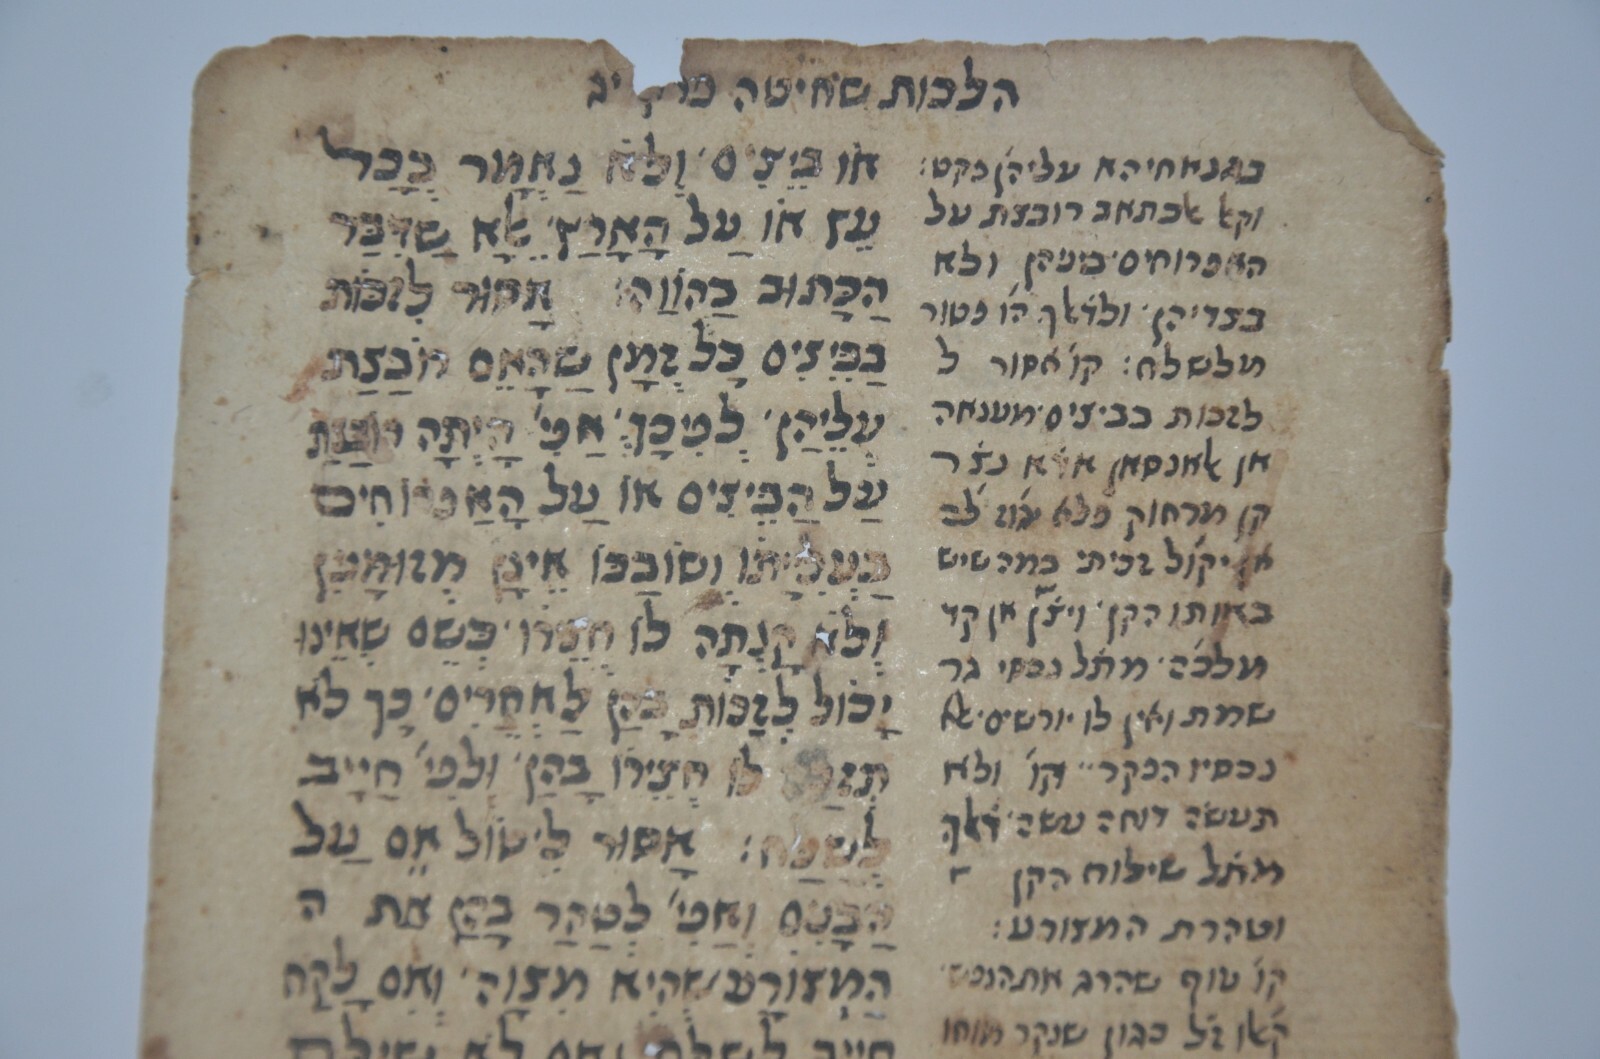 הלכות שחיטה פרק יג
או ביצים׳ ולא נאמר בכל
עץ או על הארץ׳ אלא שדבר
הכתוב בהווה: אסור לזכות
בביצים כל זמן שהאם רובצת
עליהן׳ לפיכך׳ אפי׳ היתה רובצת
על הביצים או על האפרוחים
בעלייתו ושובכו אינן מזומנין
ולא קנתה לו חצרו׳ כשם שאינו
יכול לזכות בהן לאחרים׳ כך לא
תזכה לו חצירו בהן׳ ולפי׳ חייב
לשלח: אסור ליטול אם על
הבנים ואפי׳ לטהר בהן את ה
המצורע שהיא מצוה׳ ואם לקח
חייב לשלח ואם לא שילח
עליהן פקט:
רובצת על
האפרוחים ולא
בצדיהן׳ ולדלך הו׳ פטור
מלשלח: קו׳ אסור ל
לזכות בביצים׳ מענאה
אן אלאנסאן אדא נצ׳ר
קן מרחוק פלא יגוז לה
אן יקול זכיתי במה שיש
באותו הקן׳ אן קד
נכסי גר
שמת ואין לו יורשים׳
נכסיו הפקר׳׳ קו׳ ולא
תעשה דוחה עשה׳ דלך
מתל שילוח הקן
וטהרת המצורע:
קו׳ עוף שהרג את הנפש׳
כגון שנקר מוחו